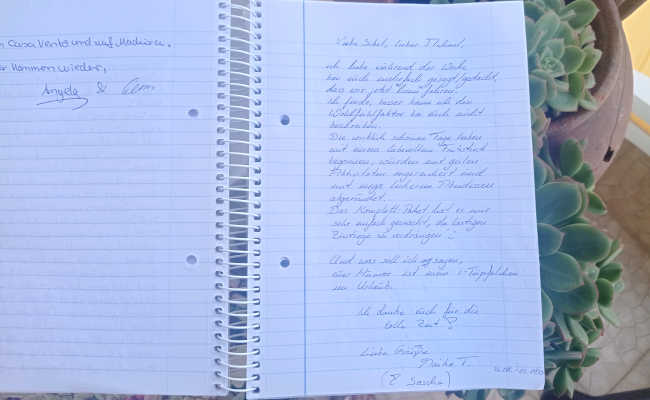 Casa Vento und auf Madeira.
kommen wieder,
Angela &
Liebe Sibel, lieber
ich habe während der Woche
bei euch mehrfach gesagt/gedacht,
dass wir jetzt heim fahren.
Ich finde, besser kann ich den
Wohlfühlfaktor bei euch nicht
beschreiben.
Die wirklich schönen Tage haben
mit einem liebevollen Frühstück
begonnen, wurden mit guten
Aktivitäten angereichert und
mit mega leckerem
abgerundet.
Das Komplett-Paket hat es mir
sehr einfach gemacht, die lästigen
zu verdrängen :)
Und was soll ich sagen,
euer Humor ist mein i-Tüpfelchen
im Urlaub.
Ich danke euch für die
tolle Zeit!
Liebe Grüße
Maike T.
(& Sascha)